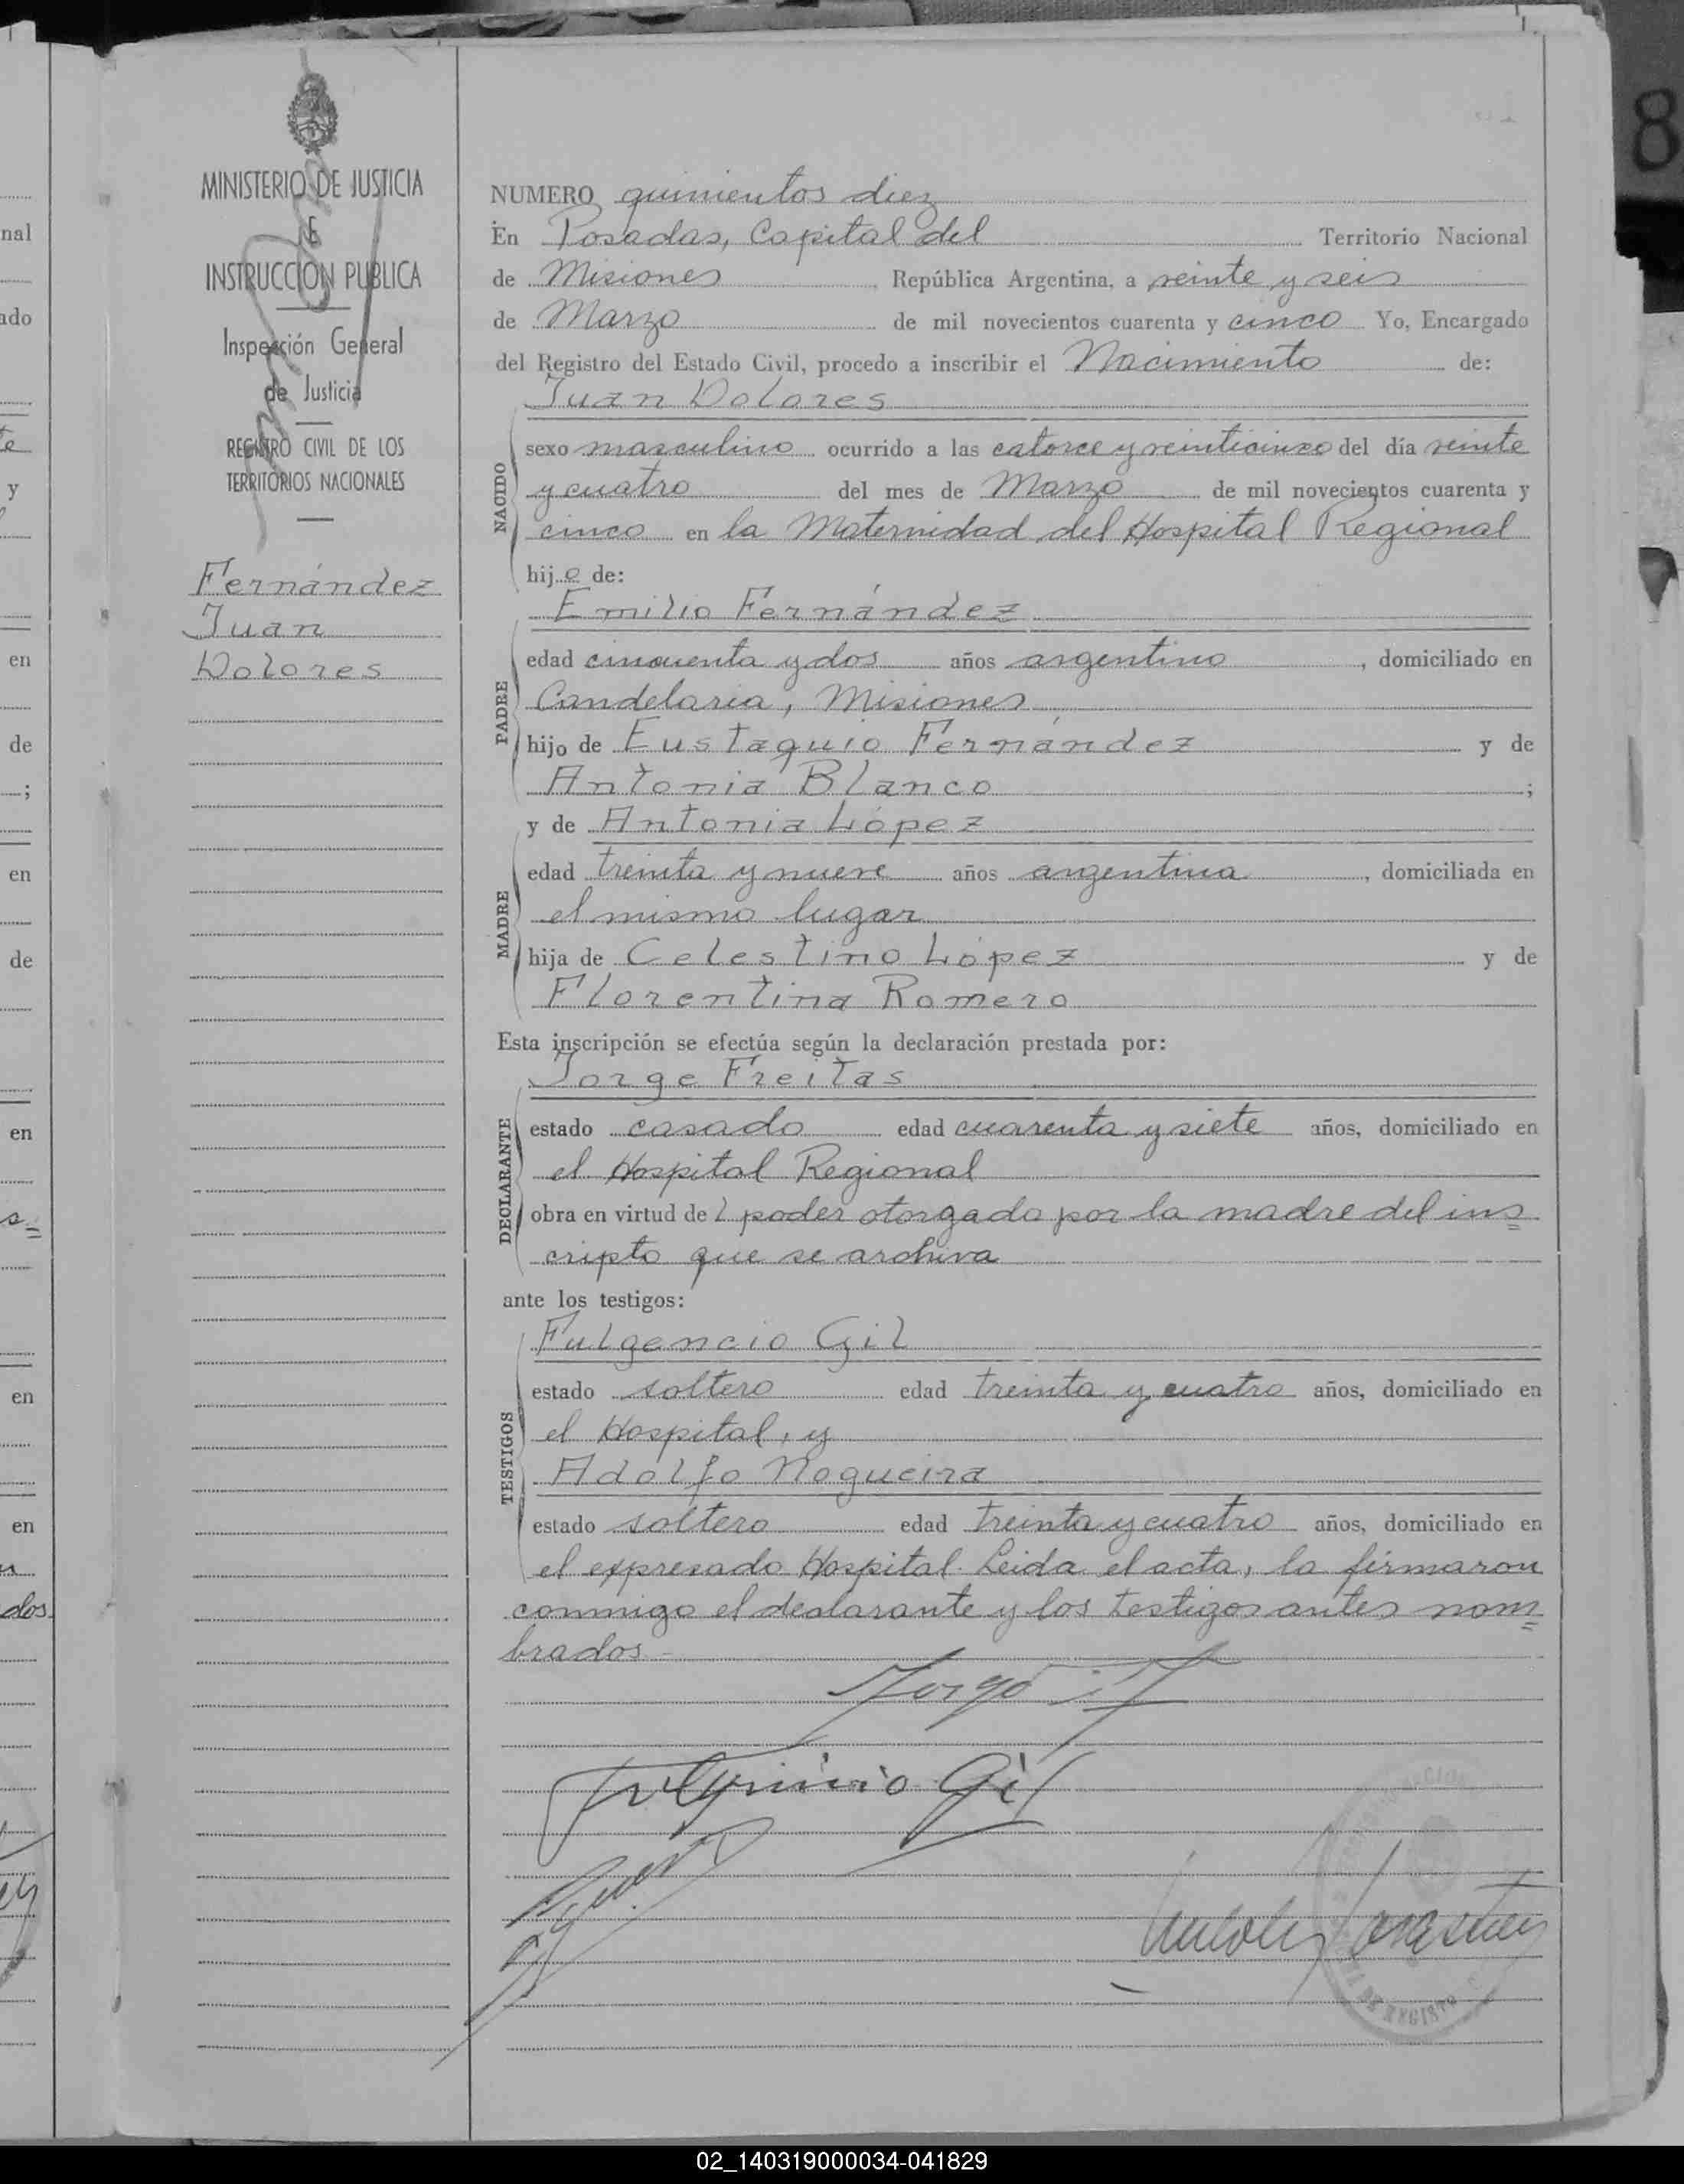 MINISTERIO DE JUSTICIA
E
INSTRUCCION PUBLICA
Inspección General
de Justicia
REGISTRO CIVIL DE LOS
TERRITORIOS NACIONALES
Fernández
Juan
Dolores
NUMERO quinientos diez
En Posadas, Capital del Territorio Nacional
de Misiones República Argentina, a veinte y seis
de Marzo de mil novecientos cuarenta y cinco Yo, Encargado
del Registro del Estado Civil, procedo a inscribir el Nacimiento de:
Juan Dolores
NACIDO
sexo masculino ocurrido a las catorce y veinticinco del día veinte
y cuatro del mes de Marzo de mil novecientos cuarenta y
cinco en la Maternidad del Hospital Regional
hijo de:
Emilio Fernández
PADRE
edad cincuenta y dos años argentino, domiciliado en
Candelaria, Misiones
hijo de Eustaquio Fernández y de
Antonia Blanco ;
y de Antonia López
MADRE
edad treinta y nueve años argentina, domiciliada en
el mismo lugar
hija de Celestino López y de
Florentina Romero
Esta inscripción se efectúa según la declaración prestada por:
Jorge Freitas
DECLARANTE
estado casado edad cuarenta y siete años, domiciliado en
el Hospital Regional
obra en virtud del poder otorgado por la madre del ins=
cripto que se archiva
ante los testigos:
Fulgencio Gil
TESTIGOS
estado soltero edad treinta y cuatro años, domiciliado en
el Hospital, y
Adolfo Nogueira
estado soltero edad treinta y cuatro años, domiciliado en
el expresado Hospital. Leida el acta, la firmaron
conmigo el declarante y los testigos antes nom=
brados.-
Jorge
Fulgencio Gil
8
nal
ado
te
y
en
de
;
en
de
en
s=
en
en
dos
02_140319000034-041829